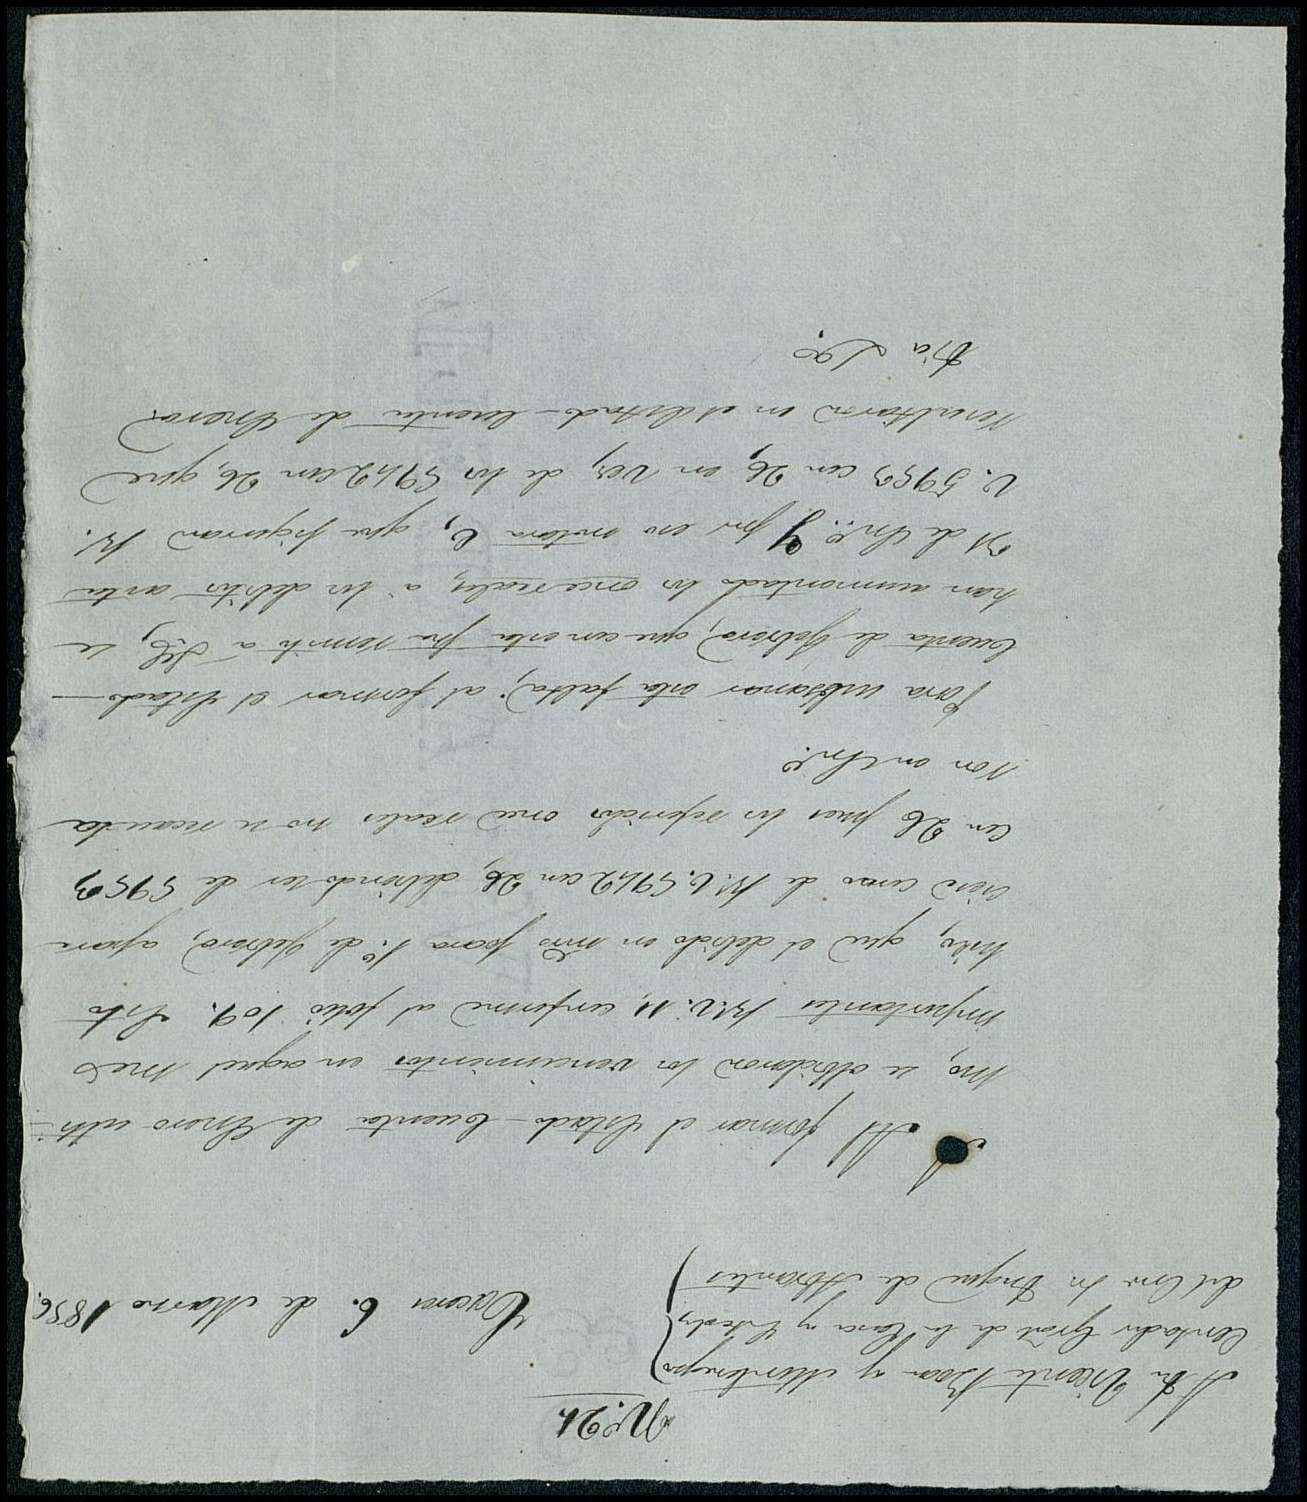 N.º 24
A Dn. Vicente Baa y Montenegro
Contador Gral de la Casa y Estados
del Exmo Sr. Duque de Abrantes
Cáceres 6. de Marzo 1856.
Al formar el Estado-Cuenta de Enero ulti-
mo, se olvidaron los vencimientos en aquel mes
importantes Rs. v. 11, conforme al folio 109. Esto
hizo, que el debido en mrs para 1.º de Febrero, apare-
ciera como de Rs. v. 5942 con 26, debiendo ser de 5953
con 26 pues los referidos once reales no se recauda
ron en Enº.
Para subsanar esta falta, al formar el Estado-
Cuenta de Febrero, que con esta fha remito a Vd., se
han aumentado los once reales, a los debitos ante
31 de Enº. Y por eso notara V., que figuran Rs.
v. 5953 con 26, en vez, de los 5942 con 26, que
resultaron en el Estado-Cuenta de Enero.
Dia